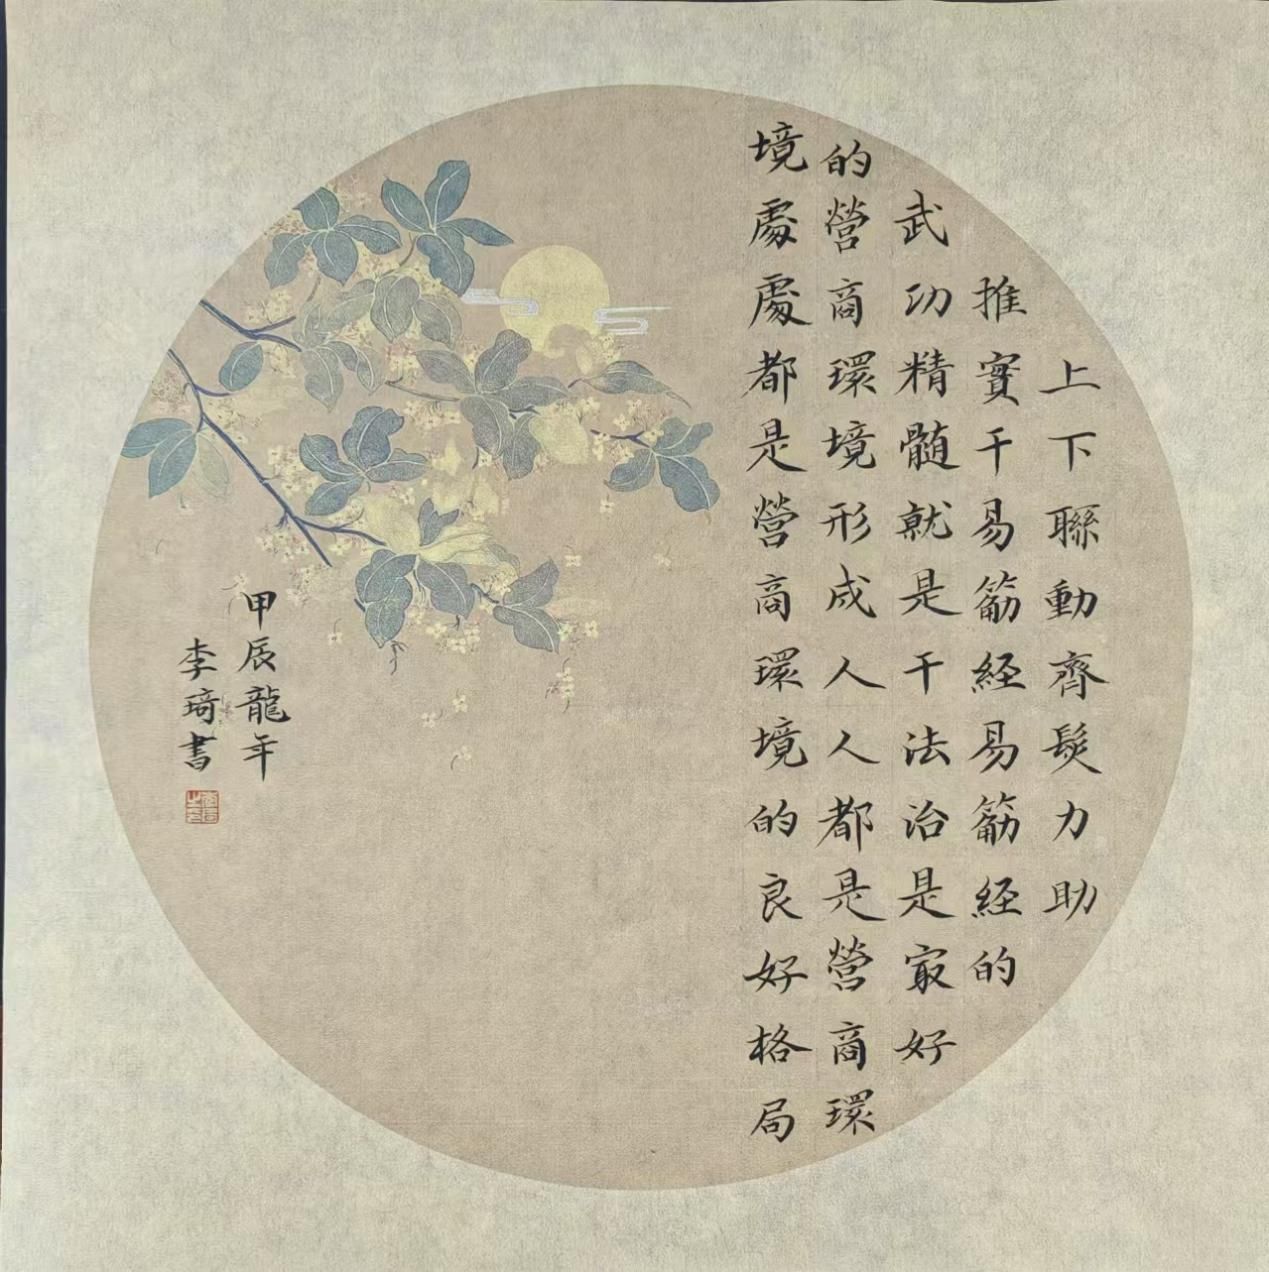 上下聯動齊髮力助
推實干易筋経易筋経的
武功精髓就是干法治是㝡好
的營商環境形成人人都是營商環
境處處都是營商環境的良好格局
甲辰龍年
李琦書